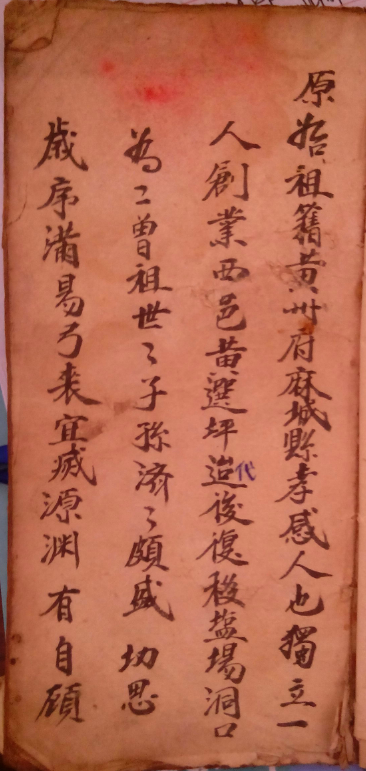 原始祖籍黄州府麻城縣孝感人也獨立一
人創業西邑黄選坪迨代後復移盐場洞口
為二曽祖世〻子孫濟〻頗盛切思
歲序滿易弓裘宜 源渊有自顧